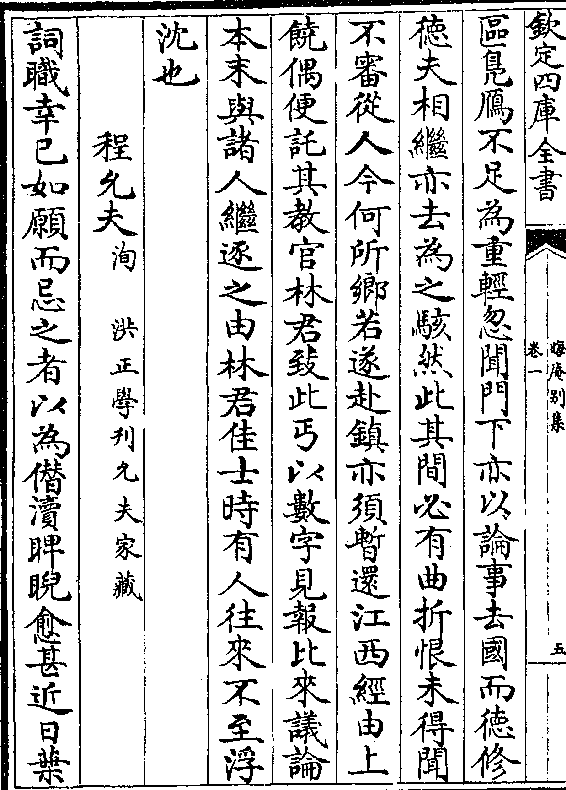 欽定四庫全書
晦庵别集
卷一
五
區鳬鴈不足為重輕忽聞門下亦以論事去國而徳修
徳夫相繼亦去為之駭然此其間必有曲折恨未得聞
不審從人今何所鄉若遂赴鎮亦須暫還江西經由上
饒偶便託其教官林君致此丐以數字見報比來議論
本末與諸人繼逐之由林君佳士時有人往來不至浮
沈也
程允夫洵 洪正學刋允夫家藏
詞職幸已如願而忌之者以為僣瀆睥睨愈甚近日葉